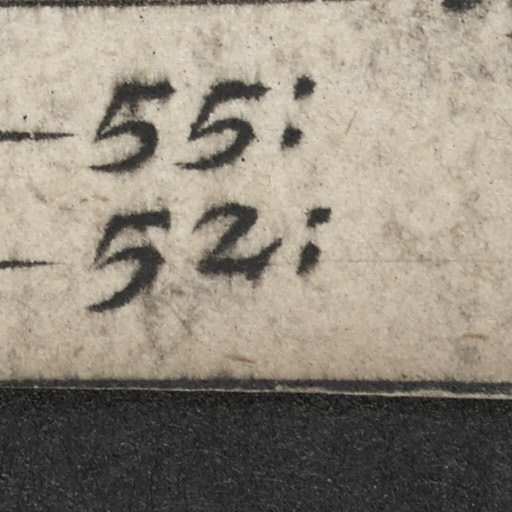 — 55:
— 52: